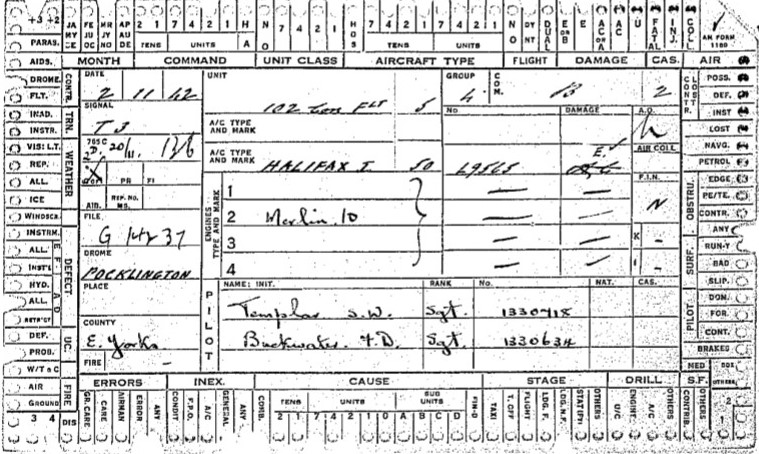 +3 +2 JA MY CE FE JU OC MR JY NO AP AU DE 2 1 7 4 2 1 H A N O 7 4 2 1 H O S 7 4 2 1 7 4 2 1 N O DY NT DUAL E OR B E AC OR A AC U FATAL INJ. COLL.
PARAS. TENS UNITS TENS UNITS AM FORM 1180
AIDS. MONTH COMMAND UNIT CLASS AIRCRAFT TYPE FLIGHT DAMAGE CAS. AIR
DROME. CONTR. DATE UNIT GROUP COM. CONTR. LOST POSS.
FLT. 2 11 42 102 Con FLT 5 4 B 2 DEF.
INAD. TRN. SIGNAL A/C TYPE AND MARK No DAMAGE A.O. INST
INSTR. T 3 LOST
VIS: L.T. WEATHER 765C D. 20/11. 13/6 A/C TYPE AND MARK E. AIR COLL NAVG.
REP. HALIFAX I 50 L9565 PETROL
ALL. PR FI ENGINES TYPE AND MARK 1 — — F.I.N. OBSTRU. EDGE
ICE AIB. REF. NO. MS. 2 Merlin 10 — — N PE/TE.
WINDSCR. FILE. CONTR.
INSTRM. DEFECT. G 1427 37 3 — — X - SURF. ANY
ALL. DROME RUN-Y
INST'L POCKLINGTON 4 — — - BAD
HYD. PLACE PILOT NAME: INIT. RANK No. NAT. CAS. PILOT SLIP.
ALL. Templar S.W. Sgt. 1330718 DON.
COUNTY FOR.
DEF. UC. E. Yorks Sgt. 1330634 CONT.
PROB. FIRE — BRAKES
W/T & C ERRORS INEX. CAUSE STAGE DRILL S.F. MED
AIR FIRE GR. CARE CARE AIRMAN ERROR ANY CONDIT F.P.O. A/C GENERAL ANY COMB. TENS UNITS SUB UNITS FIN-D TAXI T. OFF FLIGHT LDG. F. LDG. N.F. OTHERS U/C ENGINE A/C OTHERS CONTRIB. OTHERS OTHERS.
GROUND 2 1 7 4 2 1 0 A B C D 2
3 4 DIS 1